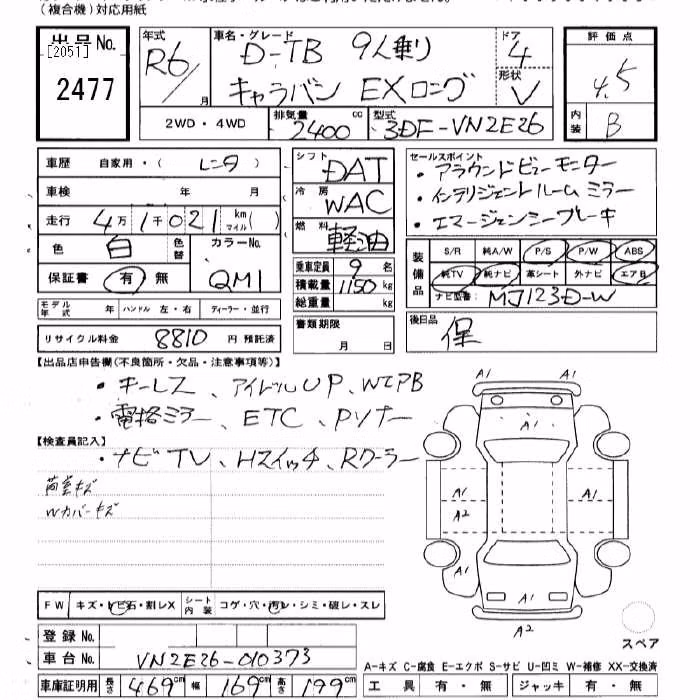 (複合機)対応用紙
出品No.
[2051]
2477
年式 R6 / 月
車名・グレード D-TB 9人乗り
キャラバン EXロング
ドア 4
形状 V
評価点 4.5
内装 B
2WD・4WD
排気量 2400 cc
型式 3DF-VN2E26
車歴 自家用・( レンタ )
車検 年 月
走行 4万1千021 km マイル ( )
色 白 色替 カラーNo. QM1
保証書 有 無
モデル年式 年 ハンドル 左・右 ディーラー・並行
リサイクル料金 8810 円 預託済
シフト DAT
冷房 WAC
燃料 軽油
乗車定員 9 名
積載量 1150 kg
総重量 kg
書類期限 月 日
セールスポイント
・アラウンドビューモニター
・インテリジェントルームミラー
・エマージェンシーブレーキ
装備品
S/R 純A/W P/S P/W ABS
純TV 純ナビ 革シート 外ナビ エアB
ナビ型番 MJ123D-W
後日品 保
【出品店申告欄(不良箇所・欠品・注意事項等)】
・キーレス、アイドルUP、WエアB
・電格ミラー、ETC、Pソナー
・ナビTV、Hスイッチ、Rクーラー
【検査員記入】
荷室キズ
Wカバーキズ
A1
A1
A1
A1
A2
A1
A1
A1
A1
A2
スペア
FW キズ・トビ石・割レX シート内装 コゲ・穴・汚レ・シミ・破レ・スレ
登録No.
車台No. VN2E26-010373
車庫証明用 長さ 469cm 幅 169cm 高さ 199cm
A-キズ C-腐食 E-エクボ S-サビ U-凹ミ W-補修 XX-交換済
工具 有・無 ジャッキ 有・無